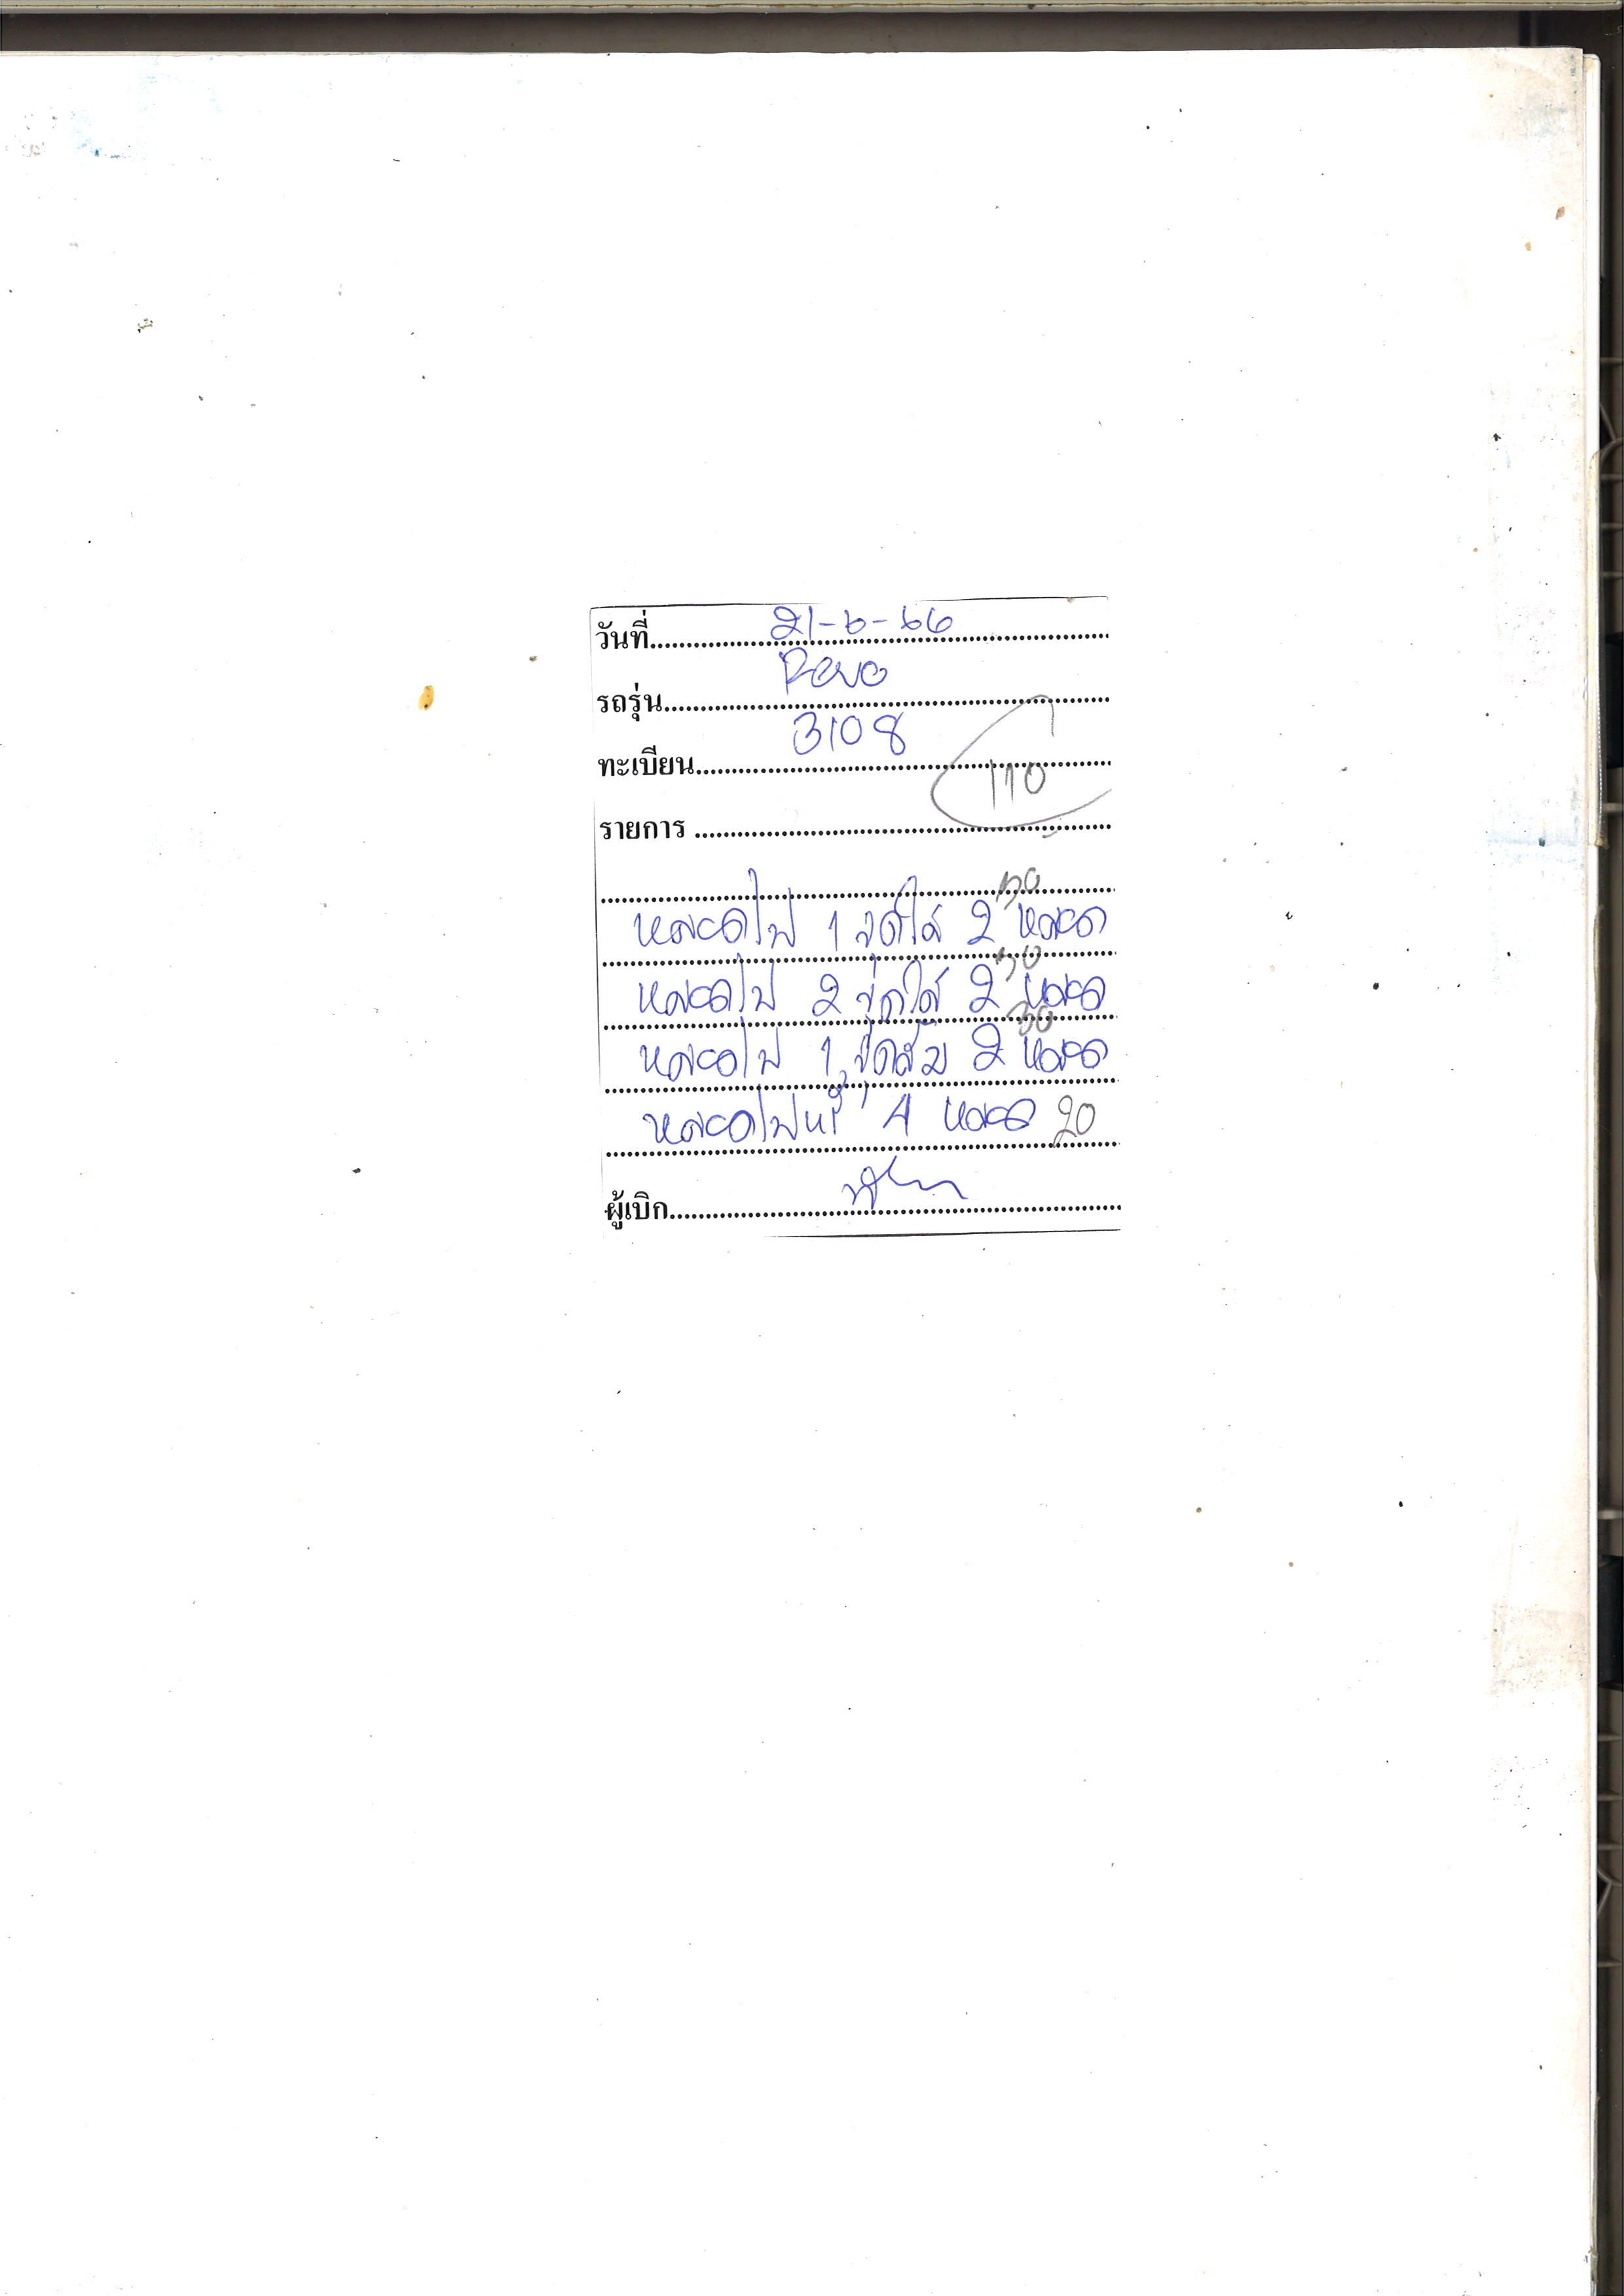 วันที่ 21-6-66
รถรุ่น Revo
ทะเบียน 3108
110
รายการ
30
หลอดไฟ 1 จุดใส 2 หลอด
30
หลอดไฟ 2 จุดใส 2 หลอด
30
หลอดไฟ 1 จุดส้ม 2 หลอด
หลอดไฟหรี่ 4 หลอด 20
ผู้เบิก